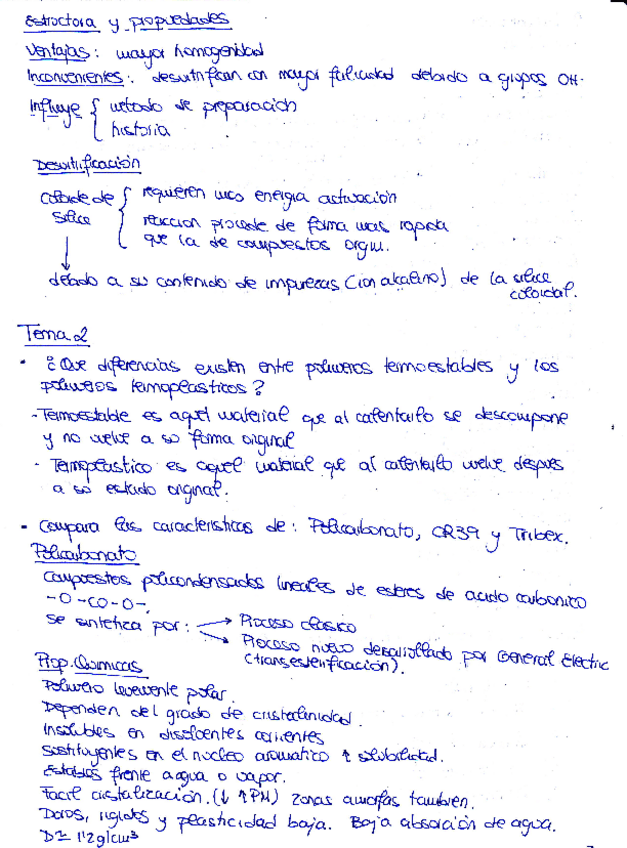 Estructura y propiedades
Ventajas: mayor homogenidad
Inconvenientes: desvitrifican con mayor facilidad debido a grupos OH-
Influye { metodo de preparación
historia
Desvitrificación
Coloide de Sílice { requieren más energia activación
reaccion procede de forma mas rapida
que la de compuestos orgm.
↓
debido a su contenido de impurezas (ion alcalino) de la silice
coloidal.
Tema 2
· ¿Que diferencias existen entre polimeros termoestables y los
polimeros termoplasticos?
- Termoestable es aquel material que al calentarlo se descompone
y no vuelve a su forma original
- Termoplastico es aquel material que al calentarlo vuelve despues
a su estado original.
- Compara las caracteristicas de: Policarbonato, CR39 y Tribex.
Policarbonato
Compuestos policondensados lineales de esteres de acido carbonico
-O-CO-O-.
se sintetiza por: → Proceso clasico
→ Proceso nuevo desarrollado por General Electric
(transesterificación).
Prop. Quimicas
Polimero levemente polar.
Dependen del grado de cristalinidad.
Insolubles en disolventes corrientes
Sustituyentes en el nucleo aromatico ↑ solubilidad.
Estables frente agua o vapor.
Facil cristalización. (↓ ↑PM) zonas amorfas tambien.
Duros, rigidos y plasticidad baja. Baja absorción de agua.
D= 1'2 g/cm³